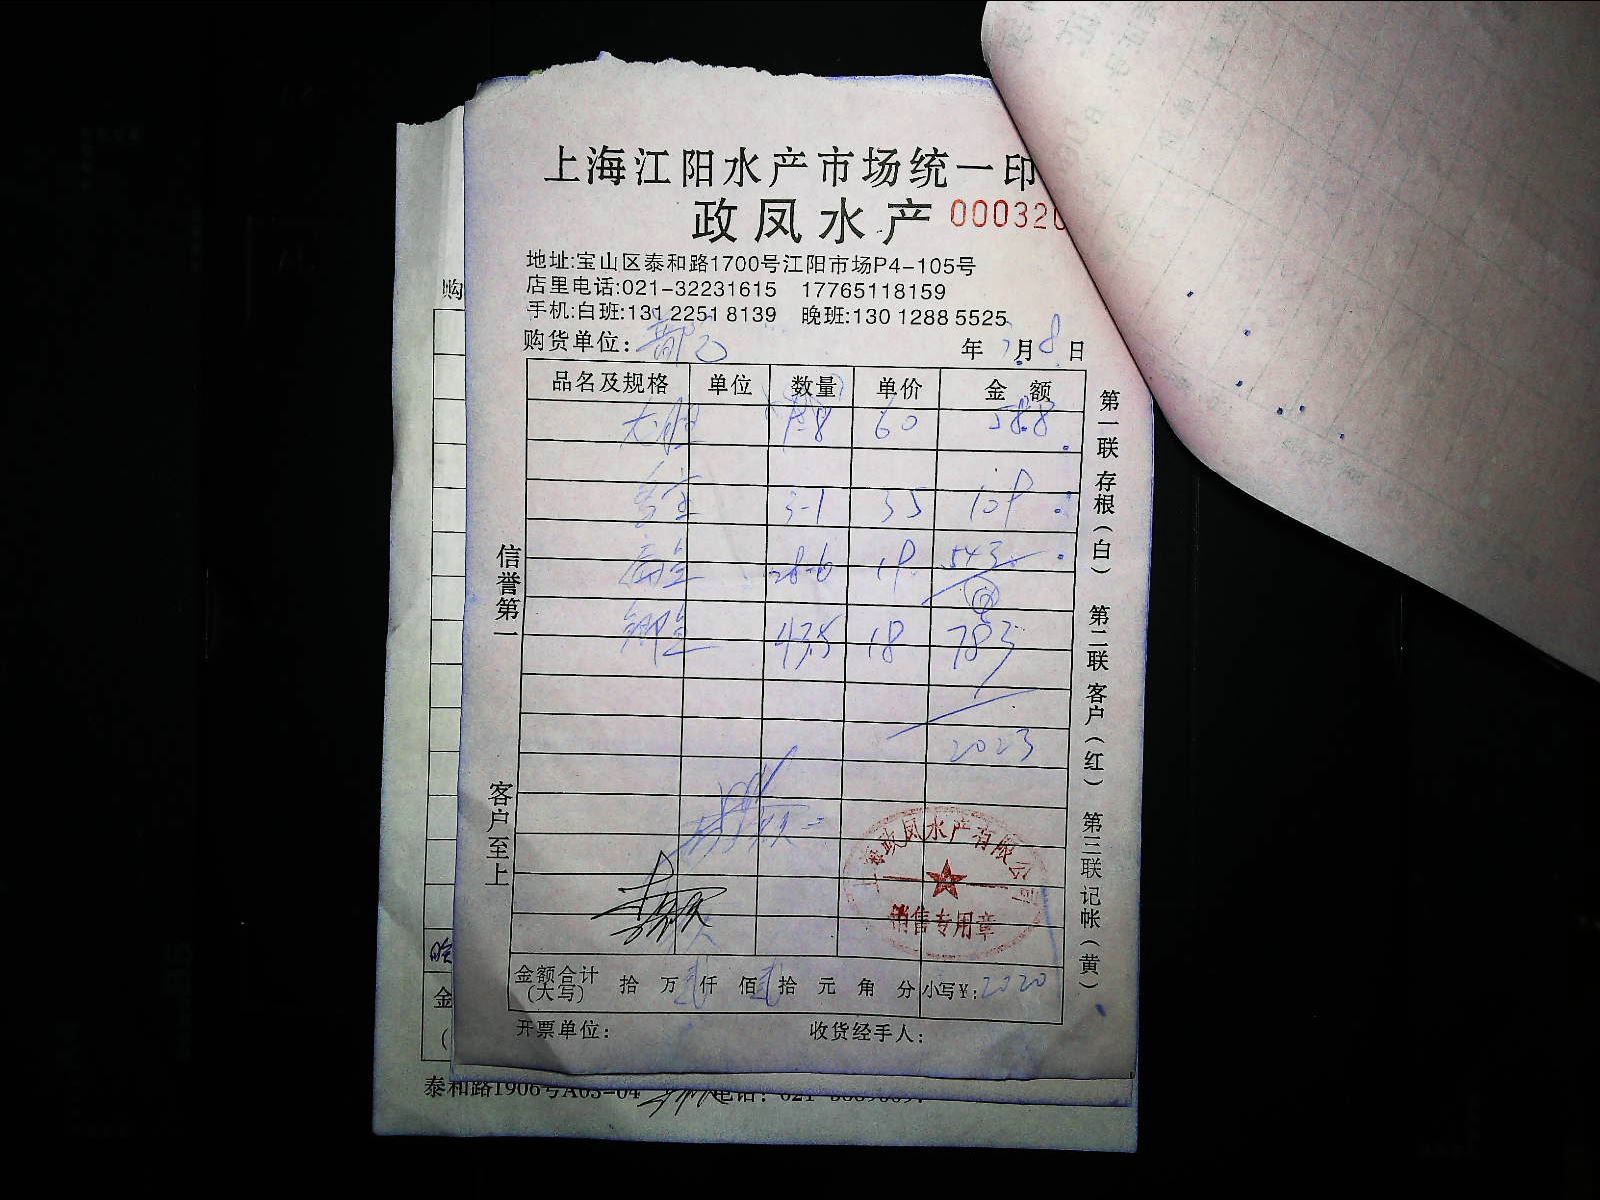 上海江阳水产市场统一印
政凤水产 000320
地址:宝山区泰和路1700号江阳市场P4-105号
店里电话:021-32231615 17765118159
手机:白班:131 2251 8139 晚班:130 1288 5525
购货单位: 年 7月8日
品名及规格 单位 数量 单价 金额
9-8 60 588
3-1 35 109
28-6 19 543
43.5 18 783
2023
信誉第一
客户至上
第一联 存根(白) 第二联 客户(红) 第三联 记帐(黄)
上海政凤水产有限公司
销售专用章
金额合计(大写) 拾 万 贰仟 佰 贰拾 元 角 分 小写¥:2020
开票单位: 收货经手人:
购
金
泰和路1906号A03-04 电话: 021